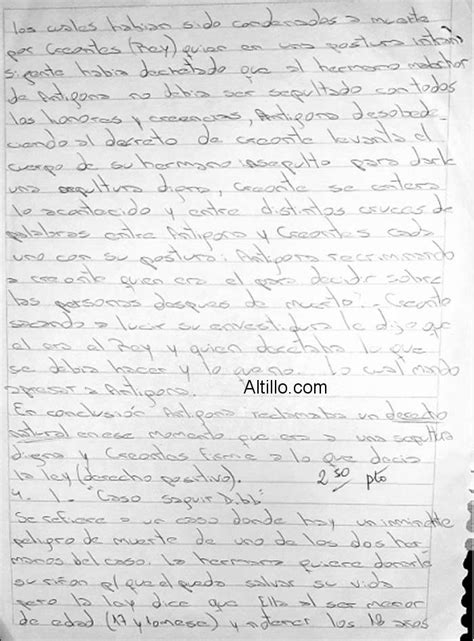 los cuales habian sido condenados a muerte
por Creontes (Rey) quien en una postura intran
sigente habia decretado que al hermano
de Antigona no debia ser sepultado con todos
los honores y creencias, Antigona desobede-
ciendo al decreto de Creonte levanta el
cuerpo de su hermano insepulto para darle
una sepultura digna, Creonte se entera
lo acontecido y entre distintos cruces de
palabras entre Antigona y Creontes cada
uno con su postura: Antigona recriminando
a creonte quien era el para decidir sobre
las personas despues de muerto?. Creonte
sacando a lucir su envestidura le dije que
el era el Rey y quien decretaba lo que
se debia hacer y lo que no. Lo cual mando
apresar a Antigona.
Altillo.com
En conclusión Antigona reclamaba un derecho
natural en ese momento que era a una sepultura
digna y Creontes firme a lo que decia
la ley (derecho positivo). 2 50 pto
4. 1. "Caso Saguir Dibb"
Se refiere a un caso donde hay un inminente
peligro de muerte de uno de los dos her
manos del caso. La hermana quiere donarle
su riñon p/ que el pueda salvar su vida
pero la ley dice que Ella al ser menor
de edad (17 y 10 meses) y no tener los 18 años